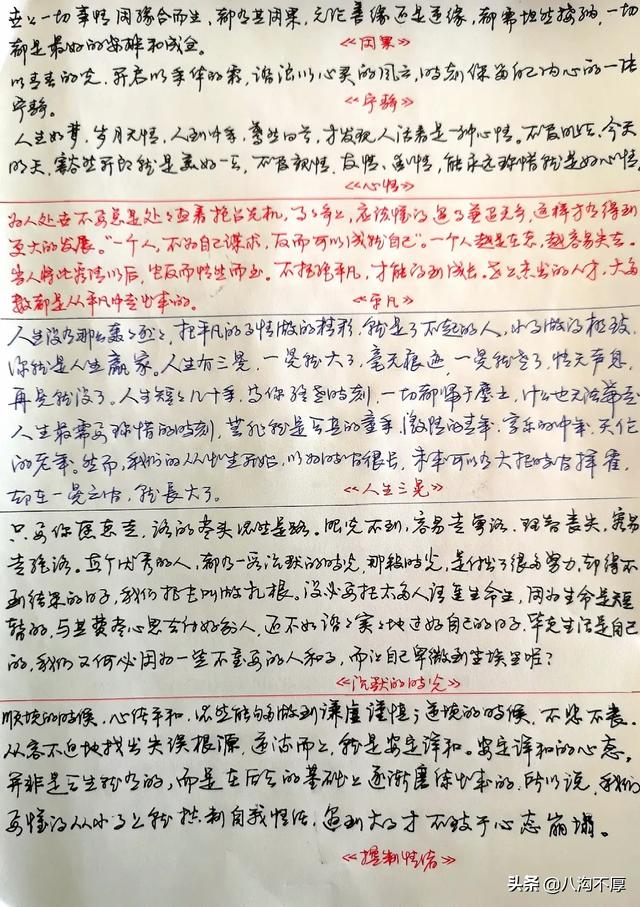 世上一切事情因缘合而生，都有其因果，无论善缘还是逆缘，都需坦然接纳，一切
都是最好的安排和成全。
《因果》
以青春的光，开启以年华的窗，语法以心灵的风云，时刻保留自己内心的一片
宁静。
《宁静》
人生如梦，岁月无情，人到中年，蓦然回首，才发现人活着是一种心情。不管昨天、今天
的天，豁然开朗就是美好一天，不管亲情、友情、爱情，能永远珍惜就是好心情。
《心情》
为人处世不要总是处处想着抢占先机，了了多上，应该懂得过了难边无争，这样才有得到
更大的发展。“一个人，不为自己谋求，反而可以成就自己”。一个人越是在意，越容易失去。
当人将此看淡以后，它反而悄然而至。不拒绝平凡，才能得到成长。世上杰出的人才，大多
数都是从平凡中走出来的。
《平凡》
人生没有那么轰轰烈烈，把平凡的事情做的精彩，就是了不起的人，小事做得极致，
你就是人生赢家。人生有三晃，一晃就大了，毫无痕迹，一晃就老了，悄无声息，
再晃就没了。人生短短几十年，当你经历时刻，一切都归于尘土，什么也无法带走
人生最需要珍惜的时刻，莫非就是天真的童年、激情的青年、享乐的中年、天伦
的老年。然而，我们的从出生开始，以为时间很长，未来可以有大把时间挥霍，
却在一晃之间，就长大了。
《人生三晃》
只要你愿意走，路的尽头依然是路。眼光不到，容易走弯路，理智丧失，容易
走绝路。真个优秀的人，都有一段沉默的时光，那段时光，是付出了很多努力，却得不
到结果的日子，我们把它叫做扎根。没必要把太多人请进生命里，因为生命是短
暂的，与其费尽心思去付好别人，还不如踏踏实实地过好自己的日子，毕竟生活是自己
的，我们又何必因为一些不重要的人和事，而让自己卑微到尘埃里呢？
《沉默的时光》
顺境的时候，心传平和，依然能够做到谦虚谨慎；逆境的时候，不悲不丧，
从容不迫地找出失误根源，逆流而上，就是安定祥和。安定祥和的心态，
并非是天生就有的，而是在后天的基础上逐渐磨练出来的，所以说，我们
要懂得从小事上就控制自我情绪，遇到大事才不致于心态崩塌。
《控制情绪》
头条 @八沟不厚